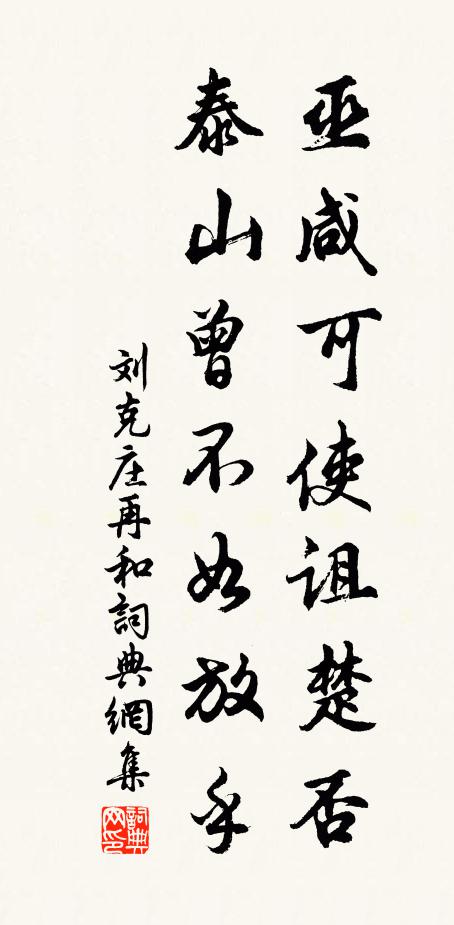 巫咸可使诅楚否
泰山曾不如放乎
刘克庄再和詞典網集
詞典网印